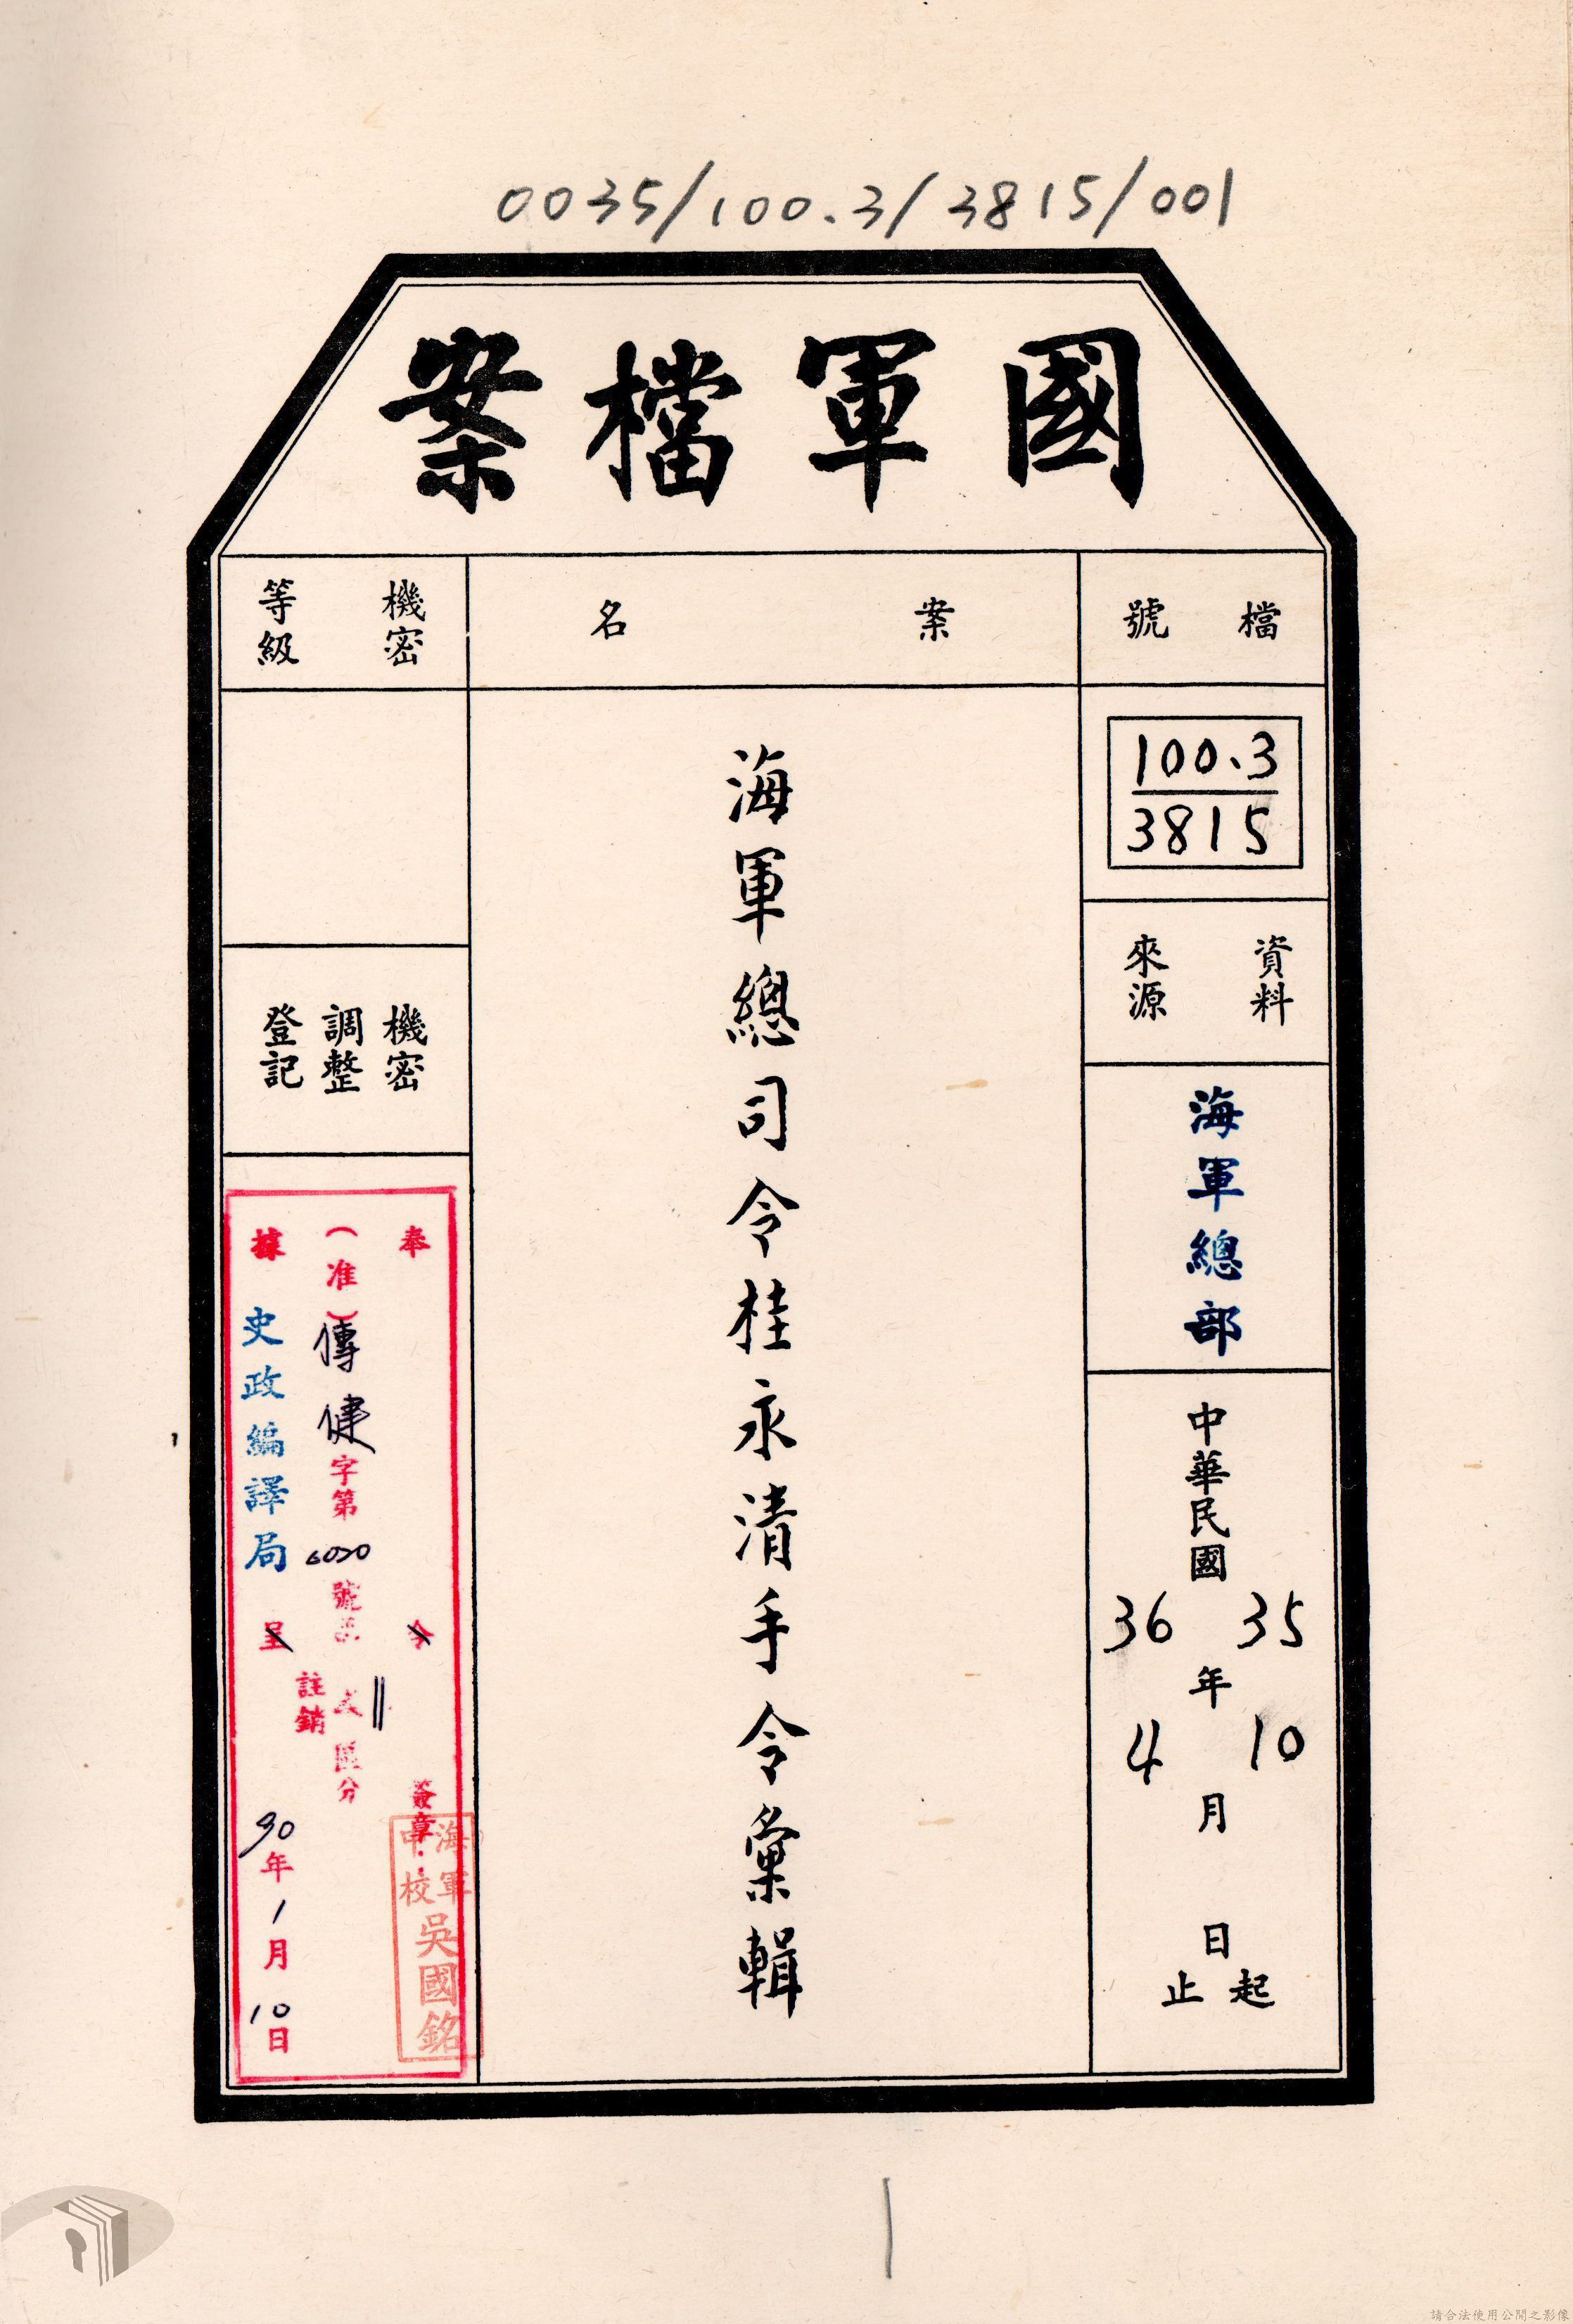 0035/100.3/3815/001
國軍檔案
檔號
100.3
3815
資料來源
海軍總部
中華民國
35 36
年
10 4
月
日
起止
案名
海軍總司令桂永清手令彙輯
機密等級
機密調整登記
奉 令
(准)傳健字第6020號
據 史政編譯局 呈
區分
註銷
90年1月10日
簽章:
海軍中校
吳國銘
1
請合法使用公開之影像